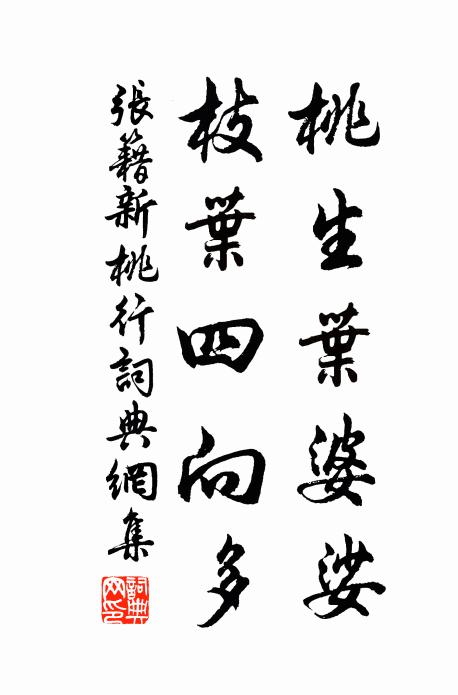 桃生葉婆娑
枝葉四向多
張籍新桃行詞典網集
詞典网印